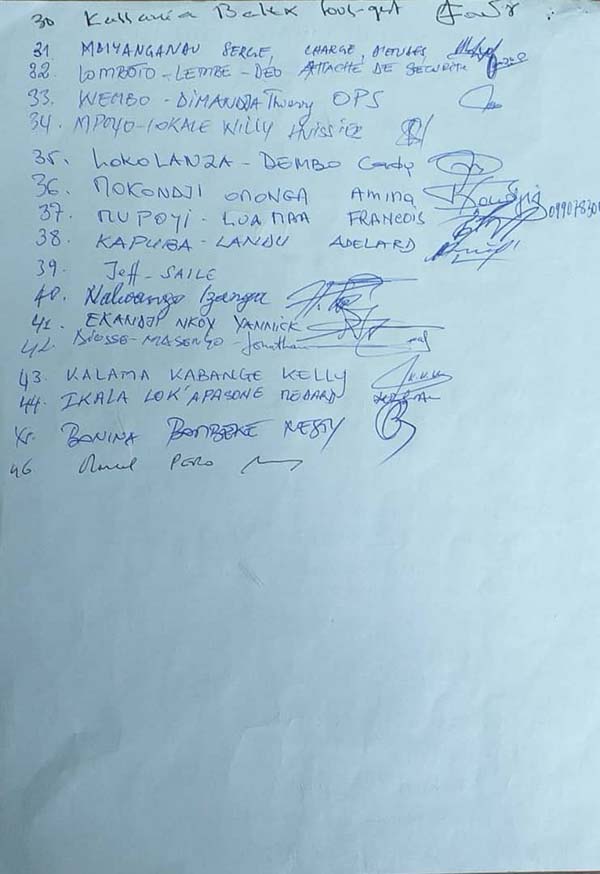 30 Kassania Balek Sous-gest
31 MBIYANGANDU SERGE, CHARGE D'ETUDES
32 LOMBOTO-LEMBE-DEO ATTACHÉ DE SECURITE
33. WEMBO-DIMANDJA Thierry OPS
34. MPOYO-LOKALE WILLY HUISSIER
35. LOKOLANZA-DEMBO Cady
36. MOKONDJI OMONGA AMINA
37. MUPOYI-LUAMAA FRANCOIS
38. KAPUBA-LANDU ADELARD
39. Jeff-SAILE
40. Izanga
41. EKANDJI NKOY YANNICK
42. MASENGO-Jonathan
43. KALAMA KABANGE KELLY
44. IKALA LOK'APASONE MEDARD
BONINA BOMBEKE NESTY
46 PERO